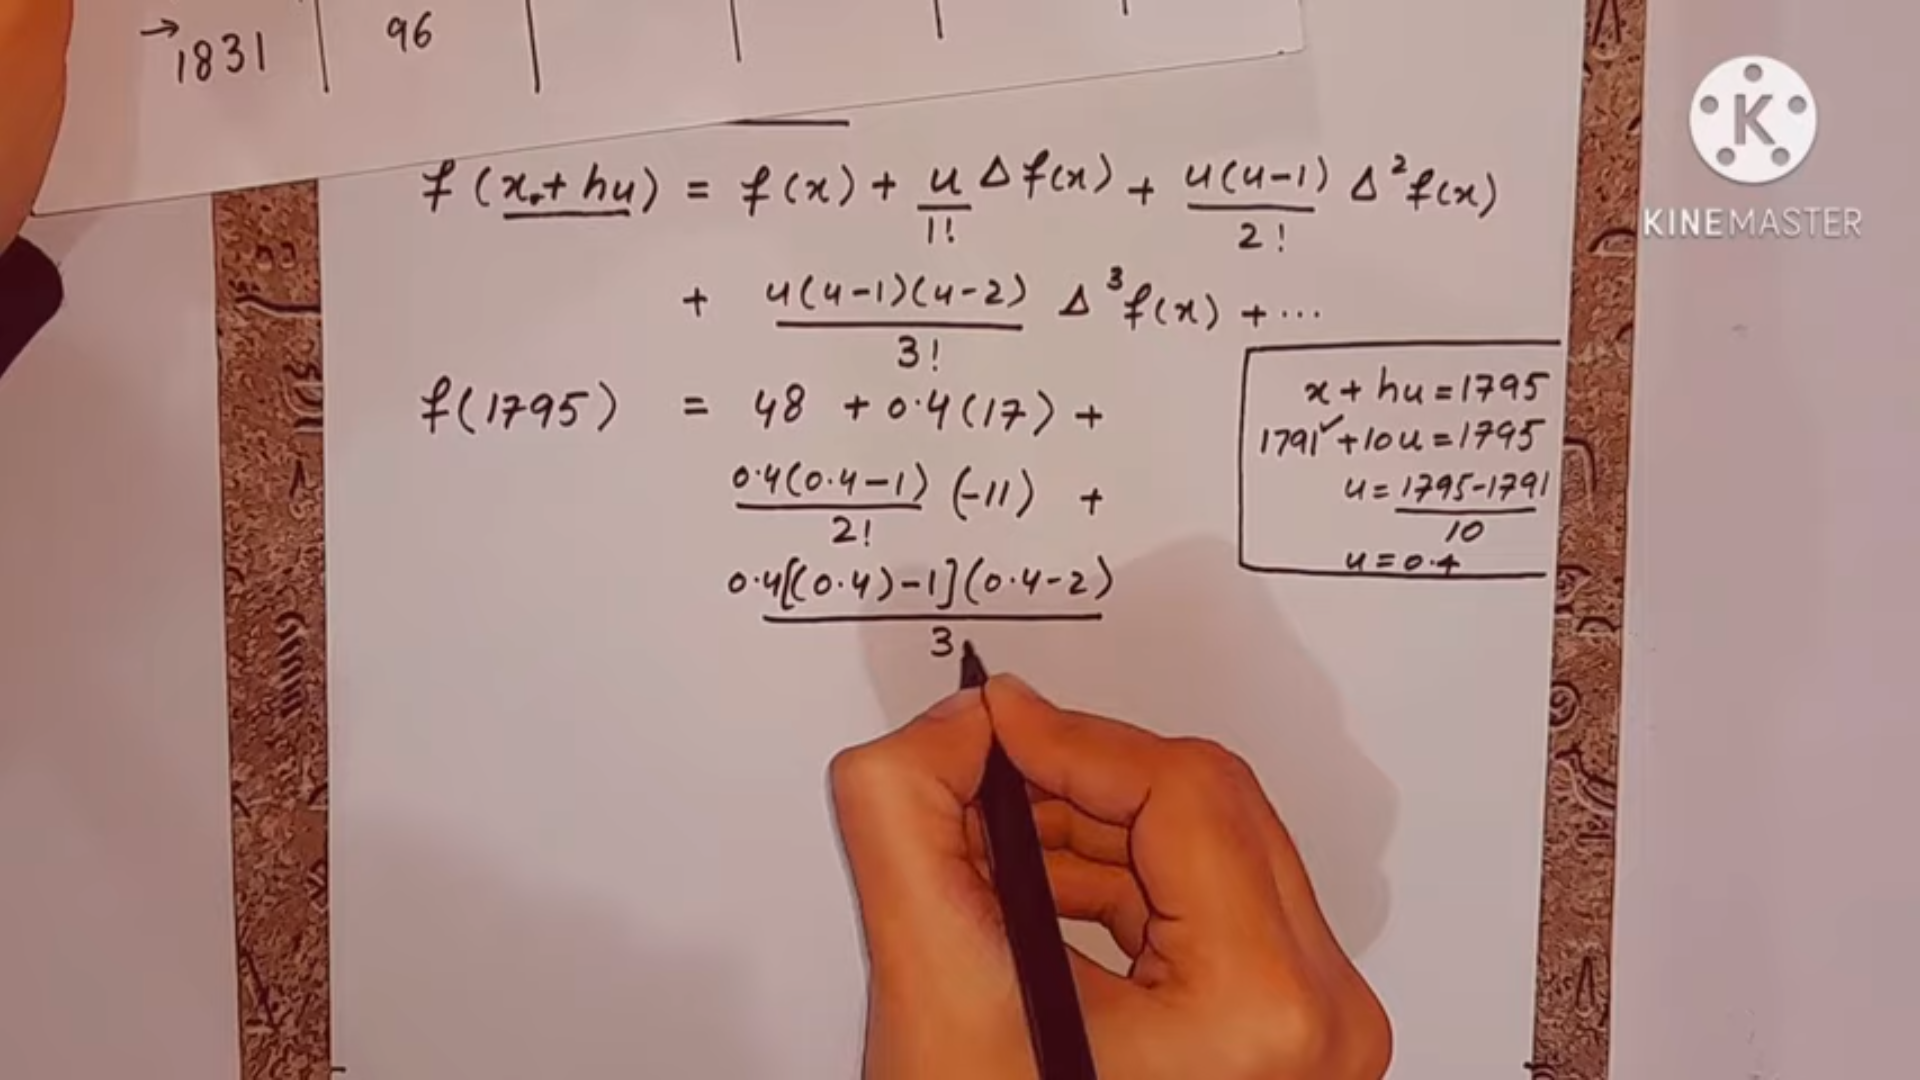 →1831 96
f(x.+hu) = f(x) + u/1! Δf(x) + u(u-1)/2! Δ²f(x)
+ u(u-1)(u-2)/3! Δ³f(x) + ...
f(1795) = 48 + 0.4(17) +
0.4(0.4-1)/2! (-11) +
0.4[(0.4)-1](0.4-2)/3
x + hu = 1795
1791✓+10u = 1795
u = 1795-1791/10
u = 0.4
K
KINEMASTER